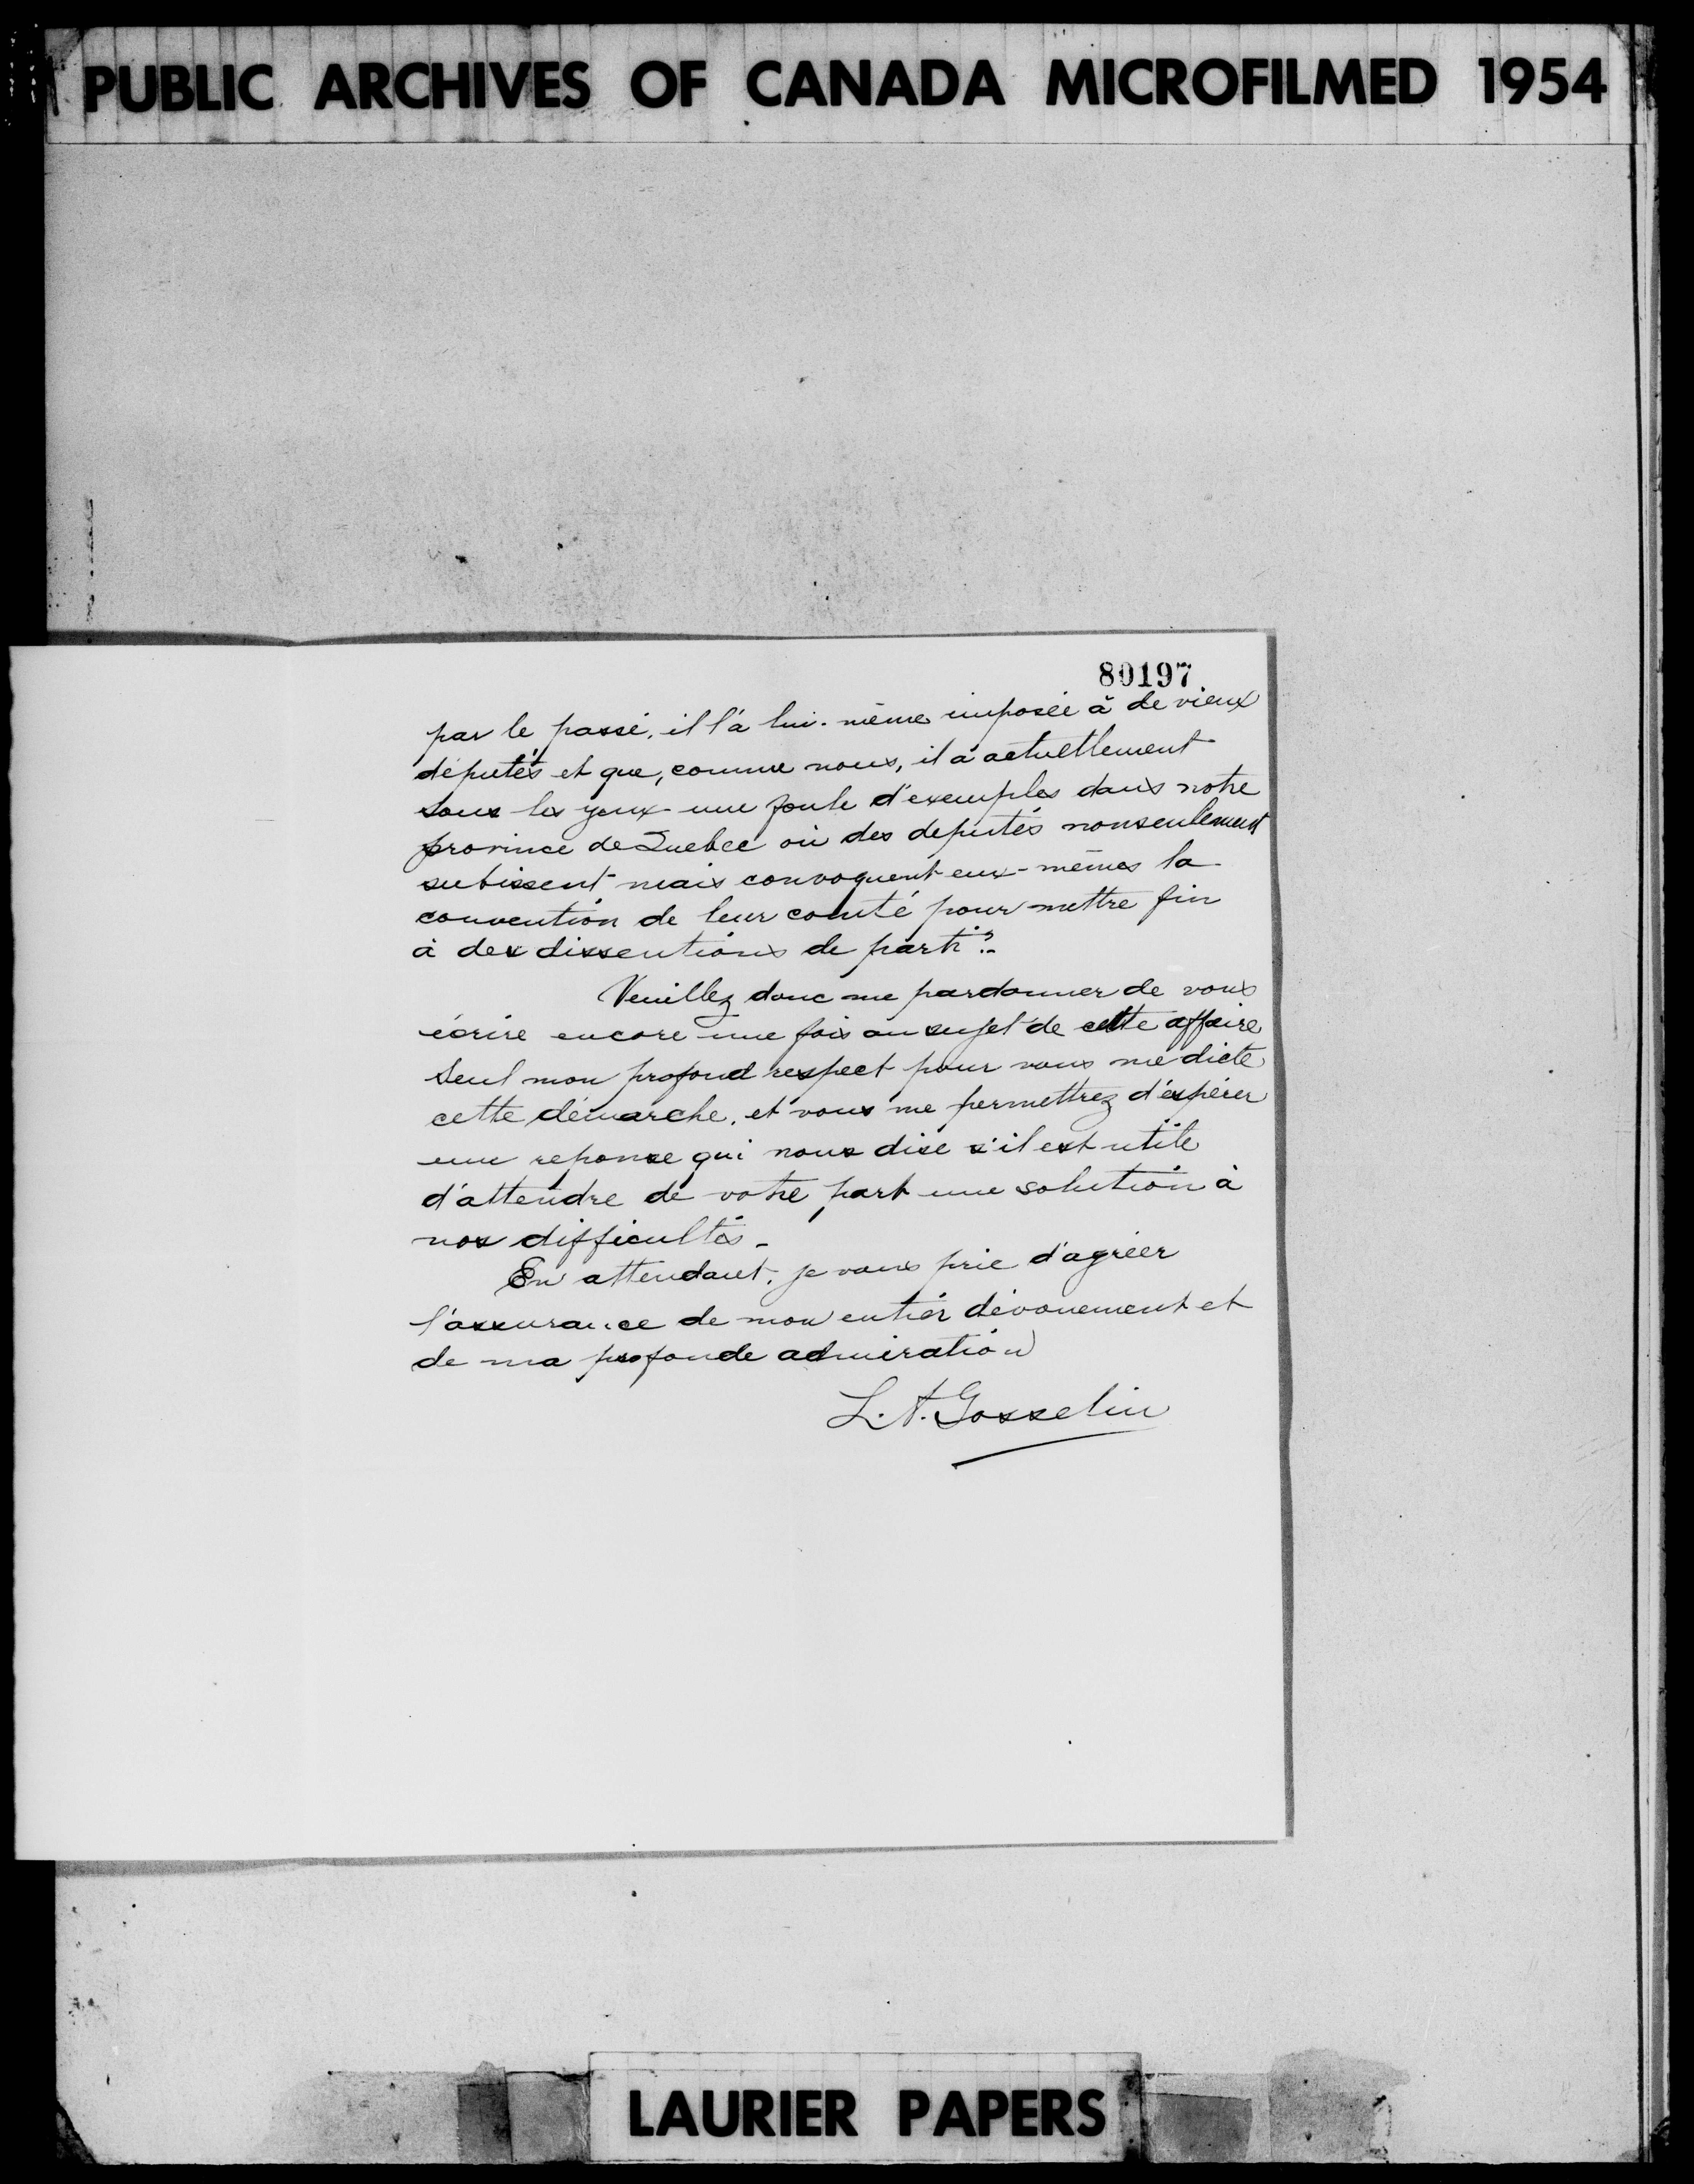 PUBLIC ARCHIVES OF CANADA MICROFILMED 1954
80197
par le passé, il l'a lui-même imposée à de vieux
députés et que, comme nous, il a actuellement
sous les yeux une foule d'exemples dans notre
province de Quebec où des deputés nonseulement
subissent mais convoquent eux-mêmes la
convention de leur comté pour mettre fin
à des dissentions de parti ?
Veuillez donc me pardonner de vous
écrire encore une fois au sujet de cette affaire
Seul mon profond respect pour vous me dicte
cette démarche, et vous me permettrez d'éspérer
une reponse qui nous dise s'il est utile
d'attendre de votre part une solution à
nos difficultés -
En attendant, je vous prie d'agréer
l'assurance de mon entier dévouement et
de ma profonde admiration
L. A. Gosselin
LAURIER PAPERS